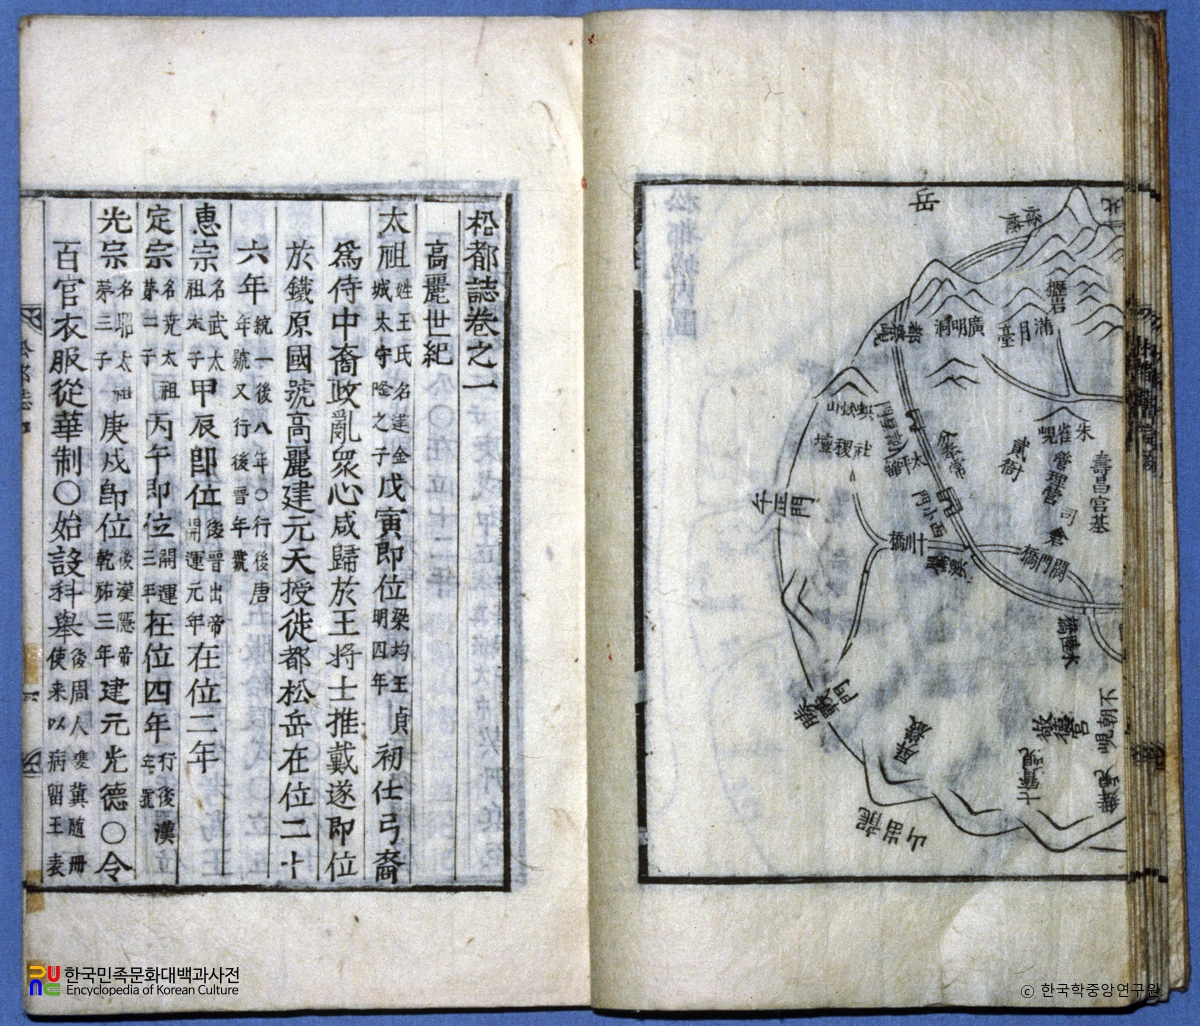 松都誌卷之一
高麗世紀
太祖 姓王氏名建金城太守隆之子 戊寅即位 梁均王貞明四年 初仕弓裔
爲侍中裔政亂衆心咸歸於王將士推戴遂即位
於鐵原國號高麗建元天授徙都松岳在位二十
六年 統一後八年○行後唐年號又行後晋年號
惠宗 名武太祖太子 甲辰即位 後晋出帝開運元年 在位二年
定宗 名堯太祖第二子 丙午即位 開運三年 在位四年 行後漢年號
光宗 名昭太祖第三子 庚戍即位 後漢隱帝乾祐三年 建元光德○令
百官衣服從華制○始設科擧 後周人雙冀隨冊使来以病留王表
北
岳
廣明洞
滿月臺
蜈蚣山
社稷壇
太平館
午正門
朱雀峴
管理營
司倉
壽昌宮基
貳衙
西小門
十川橋
閶門橋
水陸橋
敬德宮
不朝峴
龍岫山
한국민족문화대백과사전
Encyclopedia of Korean Culture
ⓒ 한국학중앙연구원